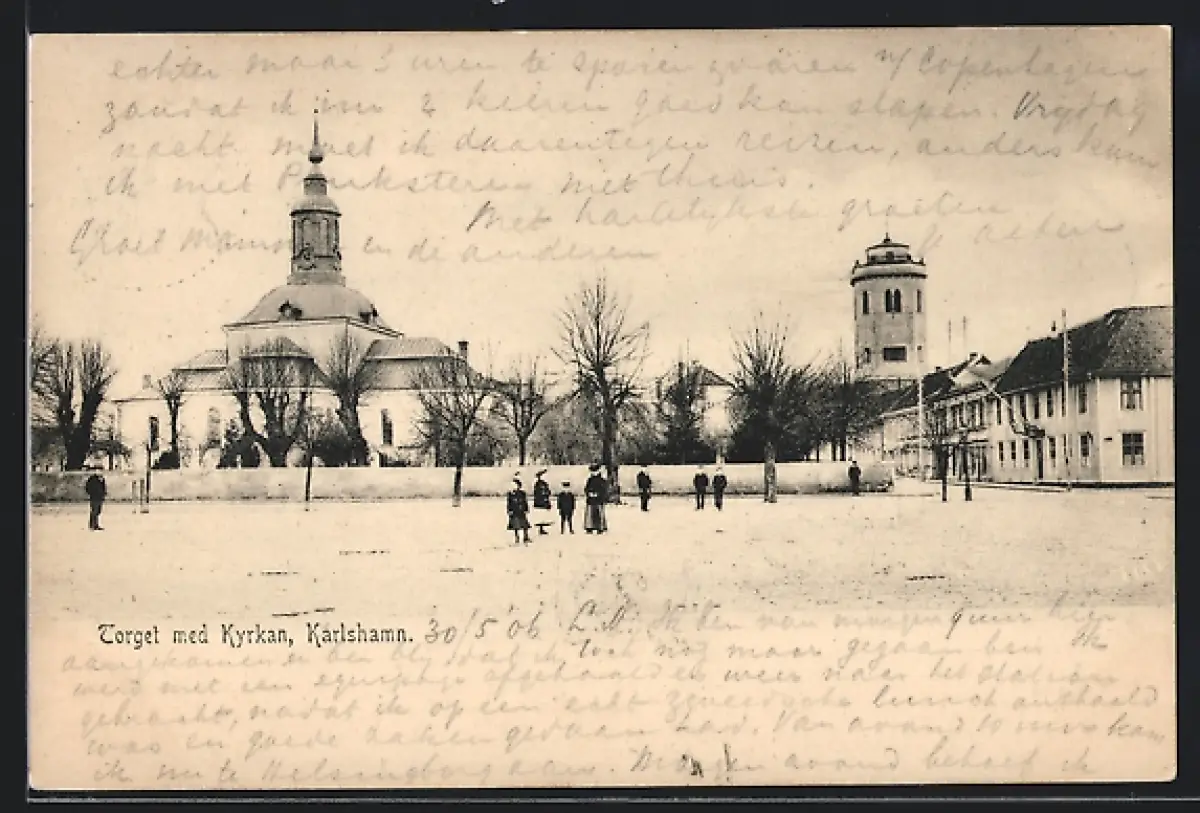 echter maar 3 uren te sporen
zoodat ik nu 2 keeren goed kan slapen. Vrydag
nacht moet ik daarentegen reizen, anders kom
ik met Pinksteren niet thuis.
Met hartelykste groeten
Groet Mama en de anderen
Torget med Kyrkan, Karlshamn. 30/5 06 L.M. Ik ben van morgen hier
aangekomen en ben bly dat ik toch nog maar gegaan ben Ik
werd met een equipage afgehaald en weer naar het station
gebracht, nadat ik op een echt zweedsche lunch onthaald
was en goede zaken gedaan had. Van avond 10 uur kom
ik nu te Helsingborg aan. Morgen avond behoef ik